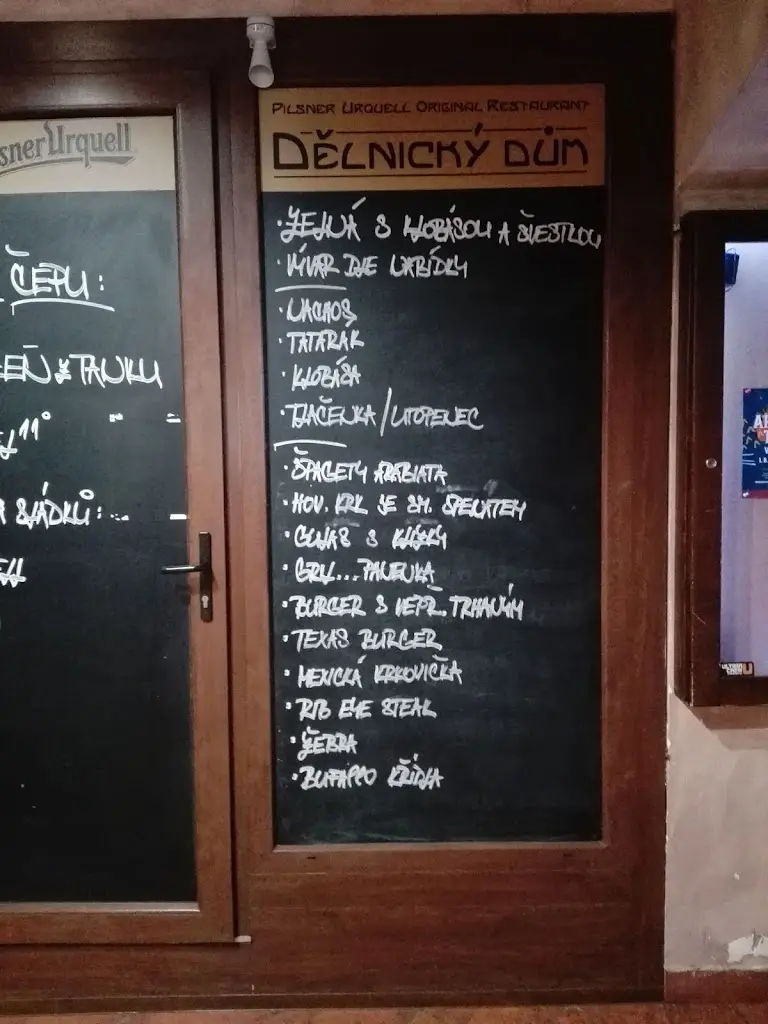 sner Urquell
ČEPU:
EŇ Z TANKU
11°
SLÁDKŮ:
PILSNER URQUELL ORIGINAL RESTAURANT
DĚLNICKÝ DŮM
· ZELNÁ S KLOBÁSOU A ŠVESTKOU
· VÝVAR DLE NABÍDKY
· NACHOS
· TATARÁK
· KLOBÁSA
· TLAČENKA / UTOPENEC
· ŠPAGETY ARABIATA
· HOV. KRK SE SM. ŠPENÁTEM
· GULÁŠ S KNEDLÍKY
· GRIL... PANENKA
· BURGER S VEPŘ. TRHANÝM
· TEXAS BURGER
· MEXICKÁ KRKOVIČKA
· RIB EYE STEAK
· ŽEBRA
· BUFALLO KŘÍDLA